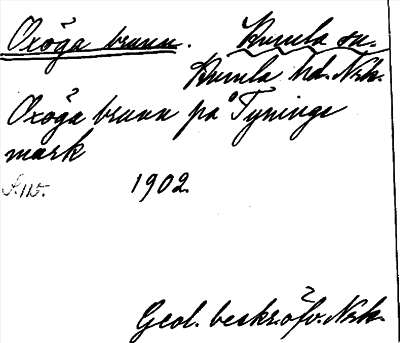 Oxöga brunn. Kumla sn.
Kumla hd. Nrk.
Oxöga brunn på Tyninge
mark
S. 115. 1902.
Geol. beskr. öfv. Nrk.